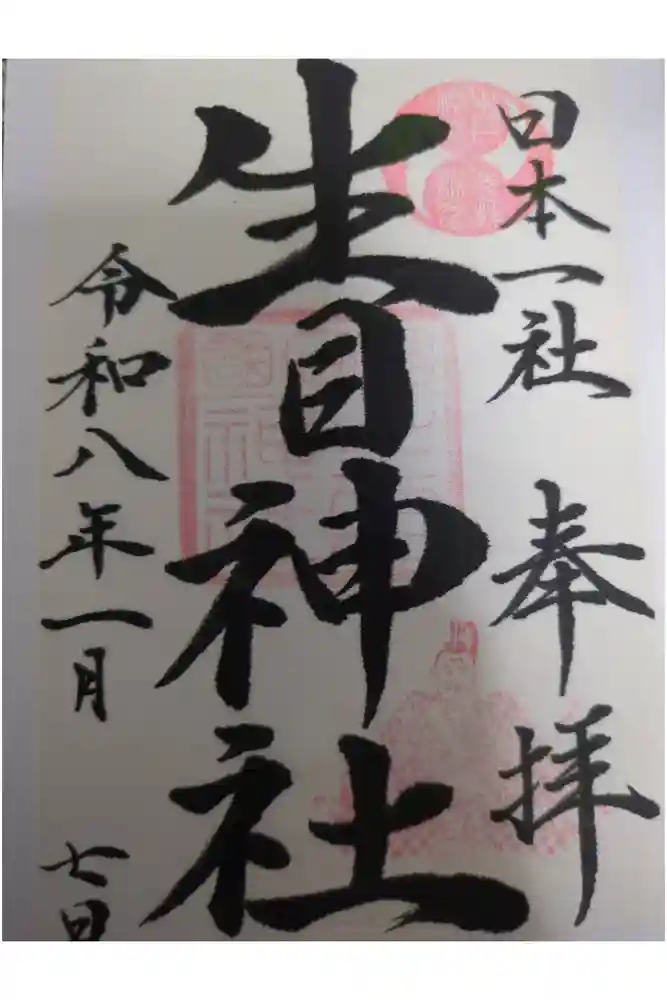 日本一社 奉拝
生目神社
令和八年一月七日